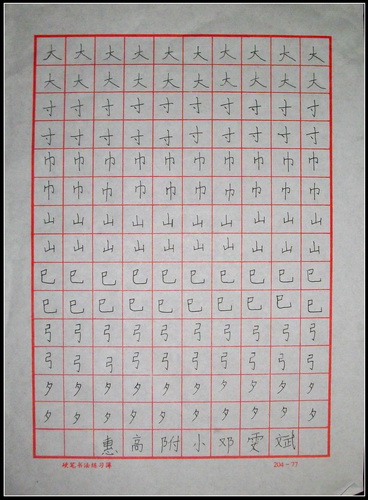 大大大大大大大大大大
大大大大大大大大大大
寸寸寸寸寸寸寸寸寸寸
寸寸寸寸寸寸寸寸寸寸
巾巾巾巾巾巾巾巾巾巾
巾巾巾巾巾巾巾巾巾巾
山山山山山山山山山山
山山山山山山山山山山
巳巳巳巳巳巳巳巳巳巳
巳巳巳巳巳巳巳巳巳巳
弓弓弓弓弓弓弓弓弓弓
弓弓弓弓弓弓弓弓弓弓
夕夕夕夕夕夕夕夕夕夕
夕夕夕夕夕夕夕夕夕夕
惠高附小邓雯斌
硬笔书法练习簿 204-77